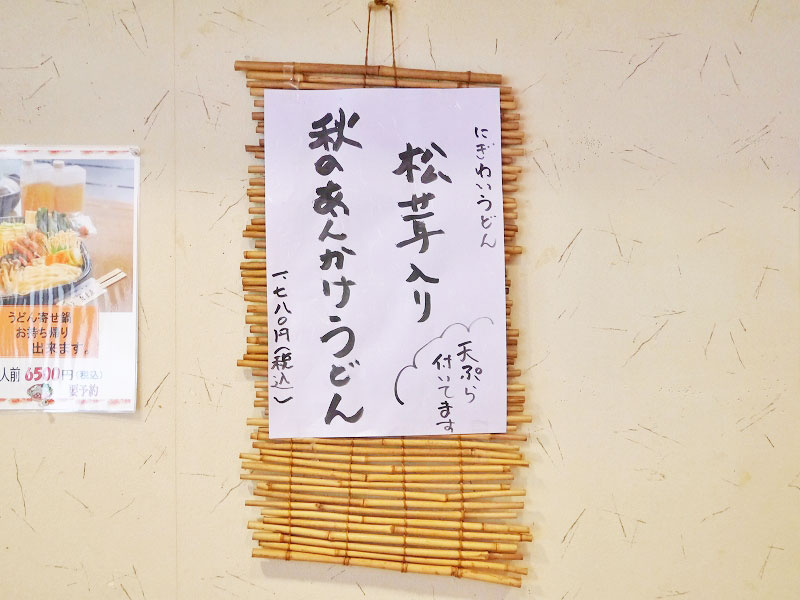 にぎわいうどん
松茸入り
秋のあんかけうどん
天ぷら
付いてます
一、七八〇円(税込)
うどん寄せ鍋
お持ち帰り
出来ます。
人前 6500円(税込)
要予約